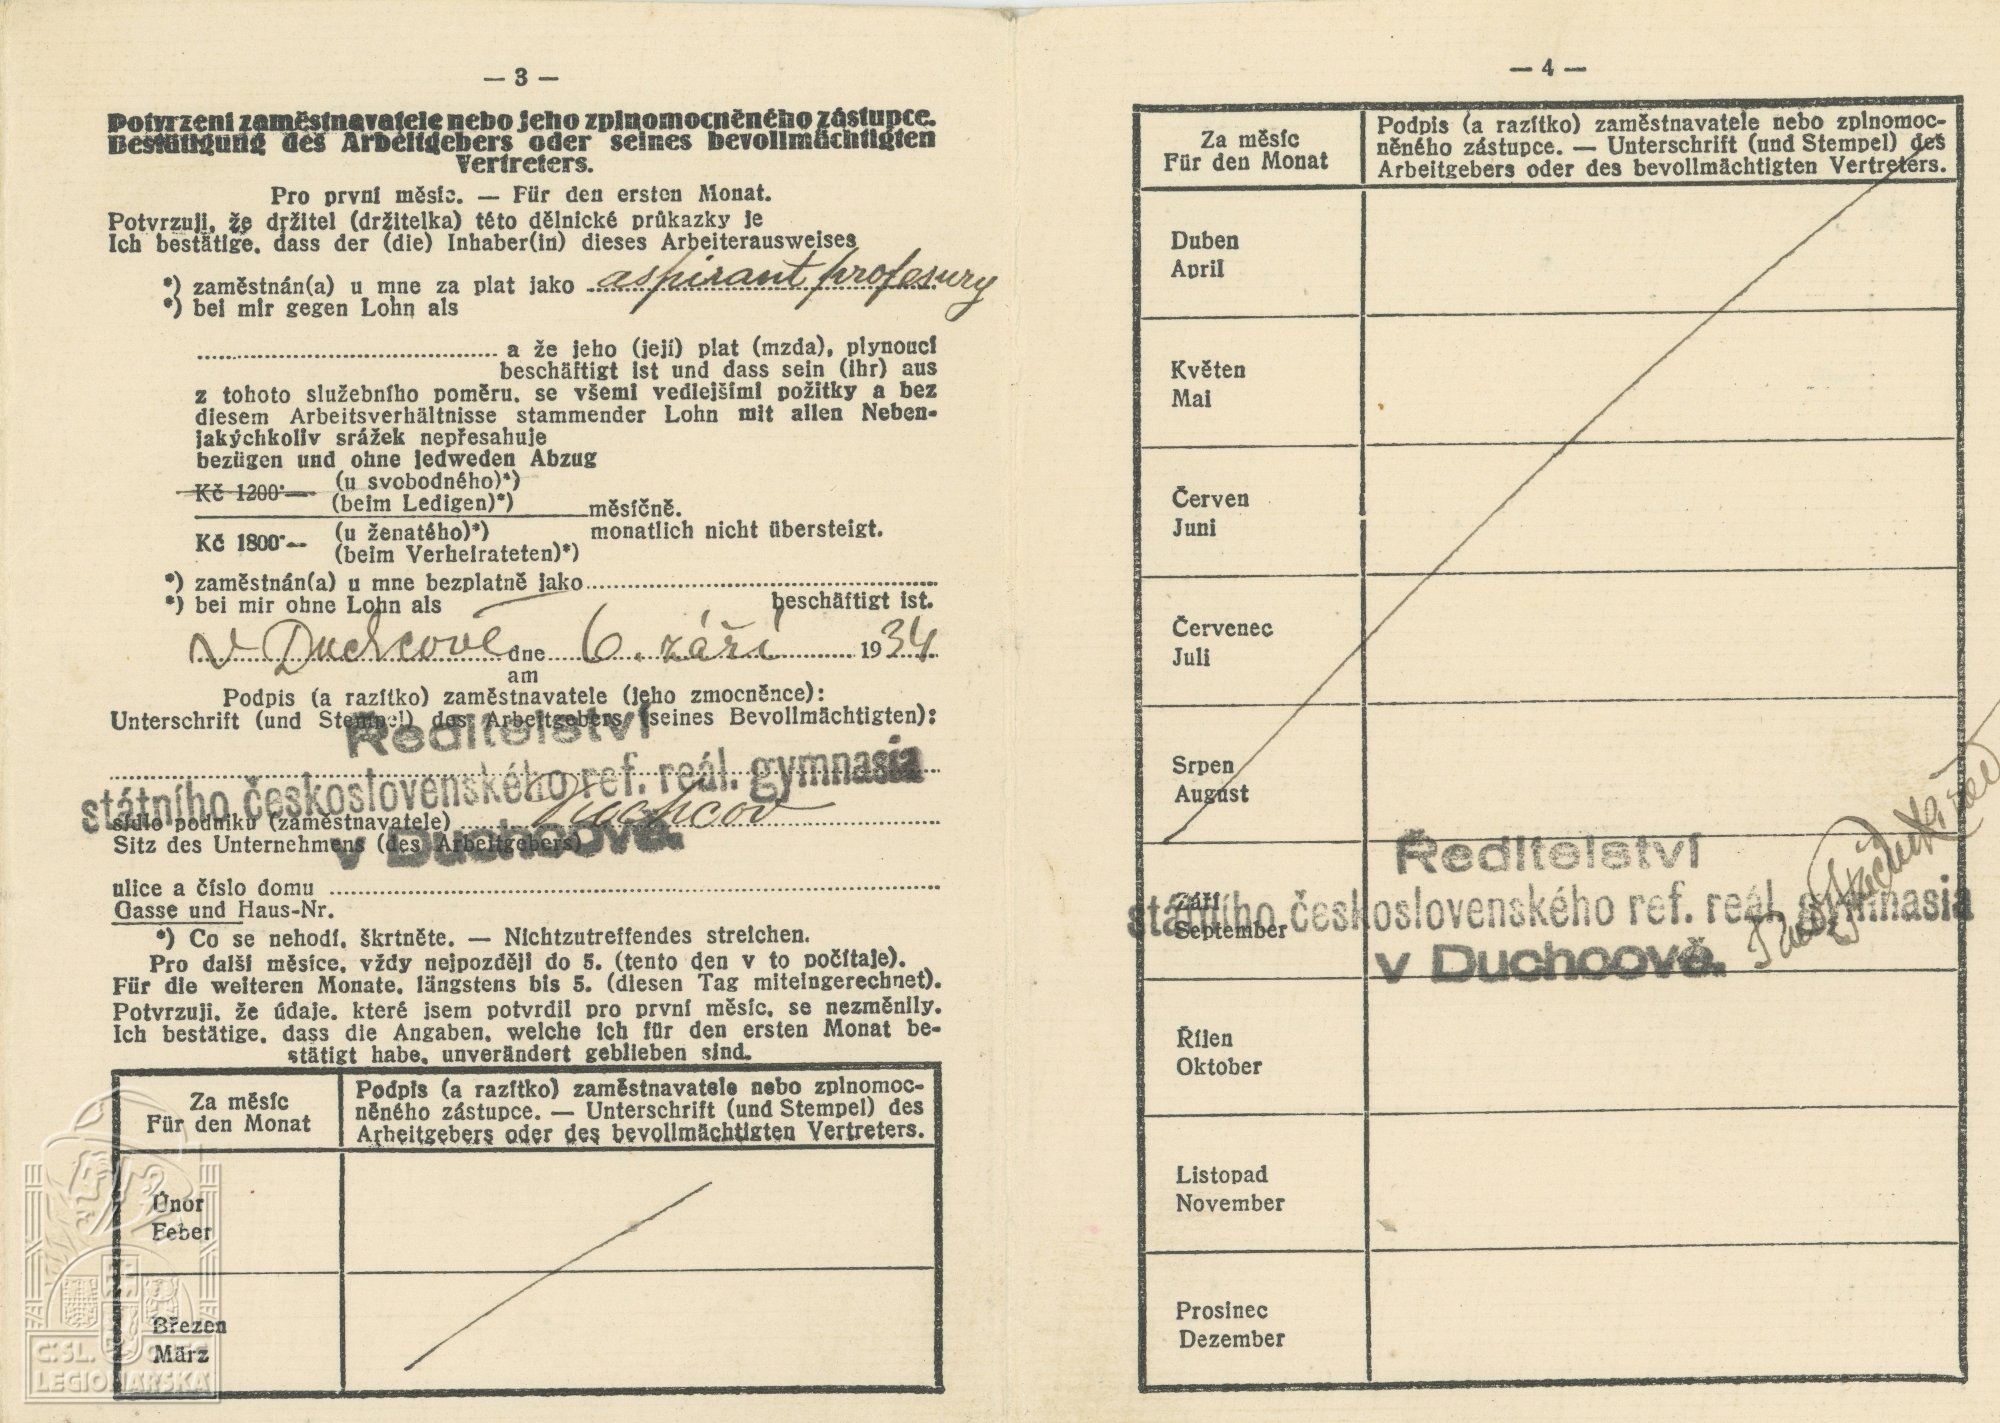 — 3 —
Potvrzení zaměstnavatele nebo jeho zplnomocněného zástupce.
Bestätigung des Arbeitgebers oder seines bevollmächtigten
Vertreters.
Pro první měsíc. — Für den ersten Monat.
Potvrzuji, že držitel (držitelka) této dělnické průkazky je
Ich bestätige, dass der (die) Inhaber(in) dieses Arbeiterausweises
*) zaměstnán(a) u mne za plat jako aspirant profesury
*) bei mir gegen Lohn als
a že jeho (její) plat (mzda), plynoucí
beschäftigt ist und dass sein (ihr) aus
z tohoto služebního poměru, se všemi vedlejšími požitky a bez
diesem Arbeitsverhältnisse stammender Lohn mit allen Neben-
jakýchkoliv srážek nepřesahuje
bezügen und ohne jedweden Abzug
Kč 1200·— (u svobodného)*)
(beim Ledigen)*)
měsíčně.
Kč 1800·— (u ženatého)*) monatlich nicht übersteigt.
(beim Verheirateten)*)
*) zaměstnán(a) u mne bezplatně jako
*) bei mir ohne Lohn als beschäftigt ist.
v Duchcově dne 6. září 1934
am
Podpis (a razítko) zaměstnavatele (jeho zmocněnce):
Unterschrift (und Stempel) des Arbeitgebers (seines Bevollmächtigten):
Ředitelství
státního československého ref. reál. gymnasia
v Duchcově.
sídlo podniku (zaměstnavatele) Duchcov
Sitz des Unternehmens (des Arbeitgebers)
ulice a číslo domu
Gasse und Haus-Nr.
*) Co se nehodí, škrtněte. — Nichtzutreffendes streichen.
Pro další měsíce, vždy nejpozději do 5. (tento den v to počítaje).
Für die weiteren Monate, längstens bis 5. (diesen Tag miteingerechnet).
Potvrzuji, že údaje, které jsem potvrdil pro první měsíc, se nezměnily.
Ich bestätige, dass die Angaben, welche ich für den ersten Monat be-
stätigt habe, unverändert geblieben sind.
Za měsíc
Für den Monat
Podpis (a razítko) zaměstnavatele nebo zplnomoc-
něného zástupce. — Unterschrift (und Stempel) des
Arbeitgebers oder des bevollmächtigten Vertreters.
Únor
Feber
Březen
März
Č.SL. OBEC
LEGIONÁŘSKÁ
— 4 —
Za měsíc
Für den Monat
Podpis (a razítko) zaměstnavatele nebo zplnomoc-
něného zástupce. — Unterschrift (und Stempel) des
Arbeitgebers oder des bevollmächtigten Vertreters.
Duben
April
Květen
Mai
Červen
Juni
Červenec
Juli
Srpen
August
Září
September
Ředitelství
státního československého ref. reál. gymnasia
v Duchcově.
Říjen
Oktober
Listopad
November
Prosinec
Dezember